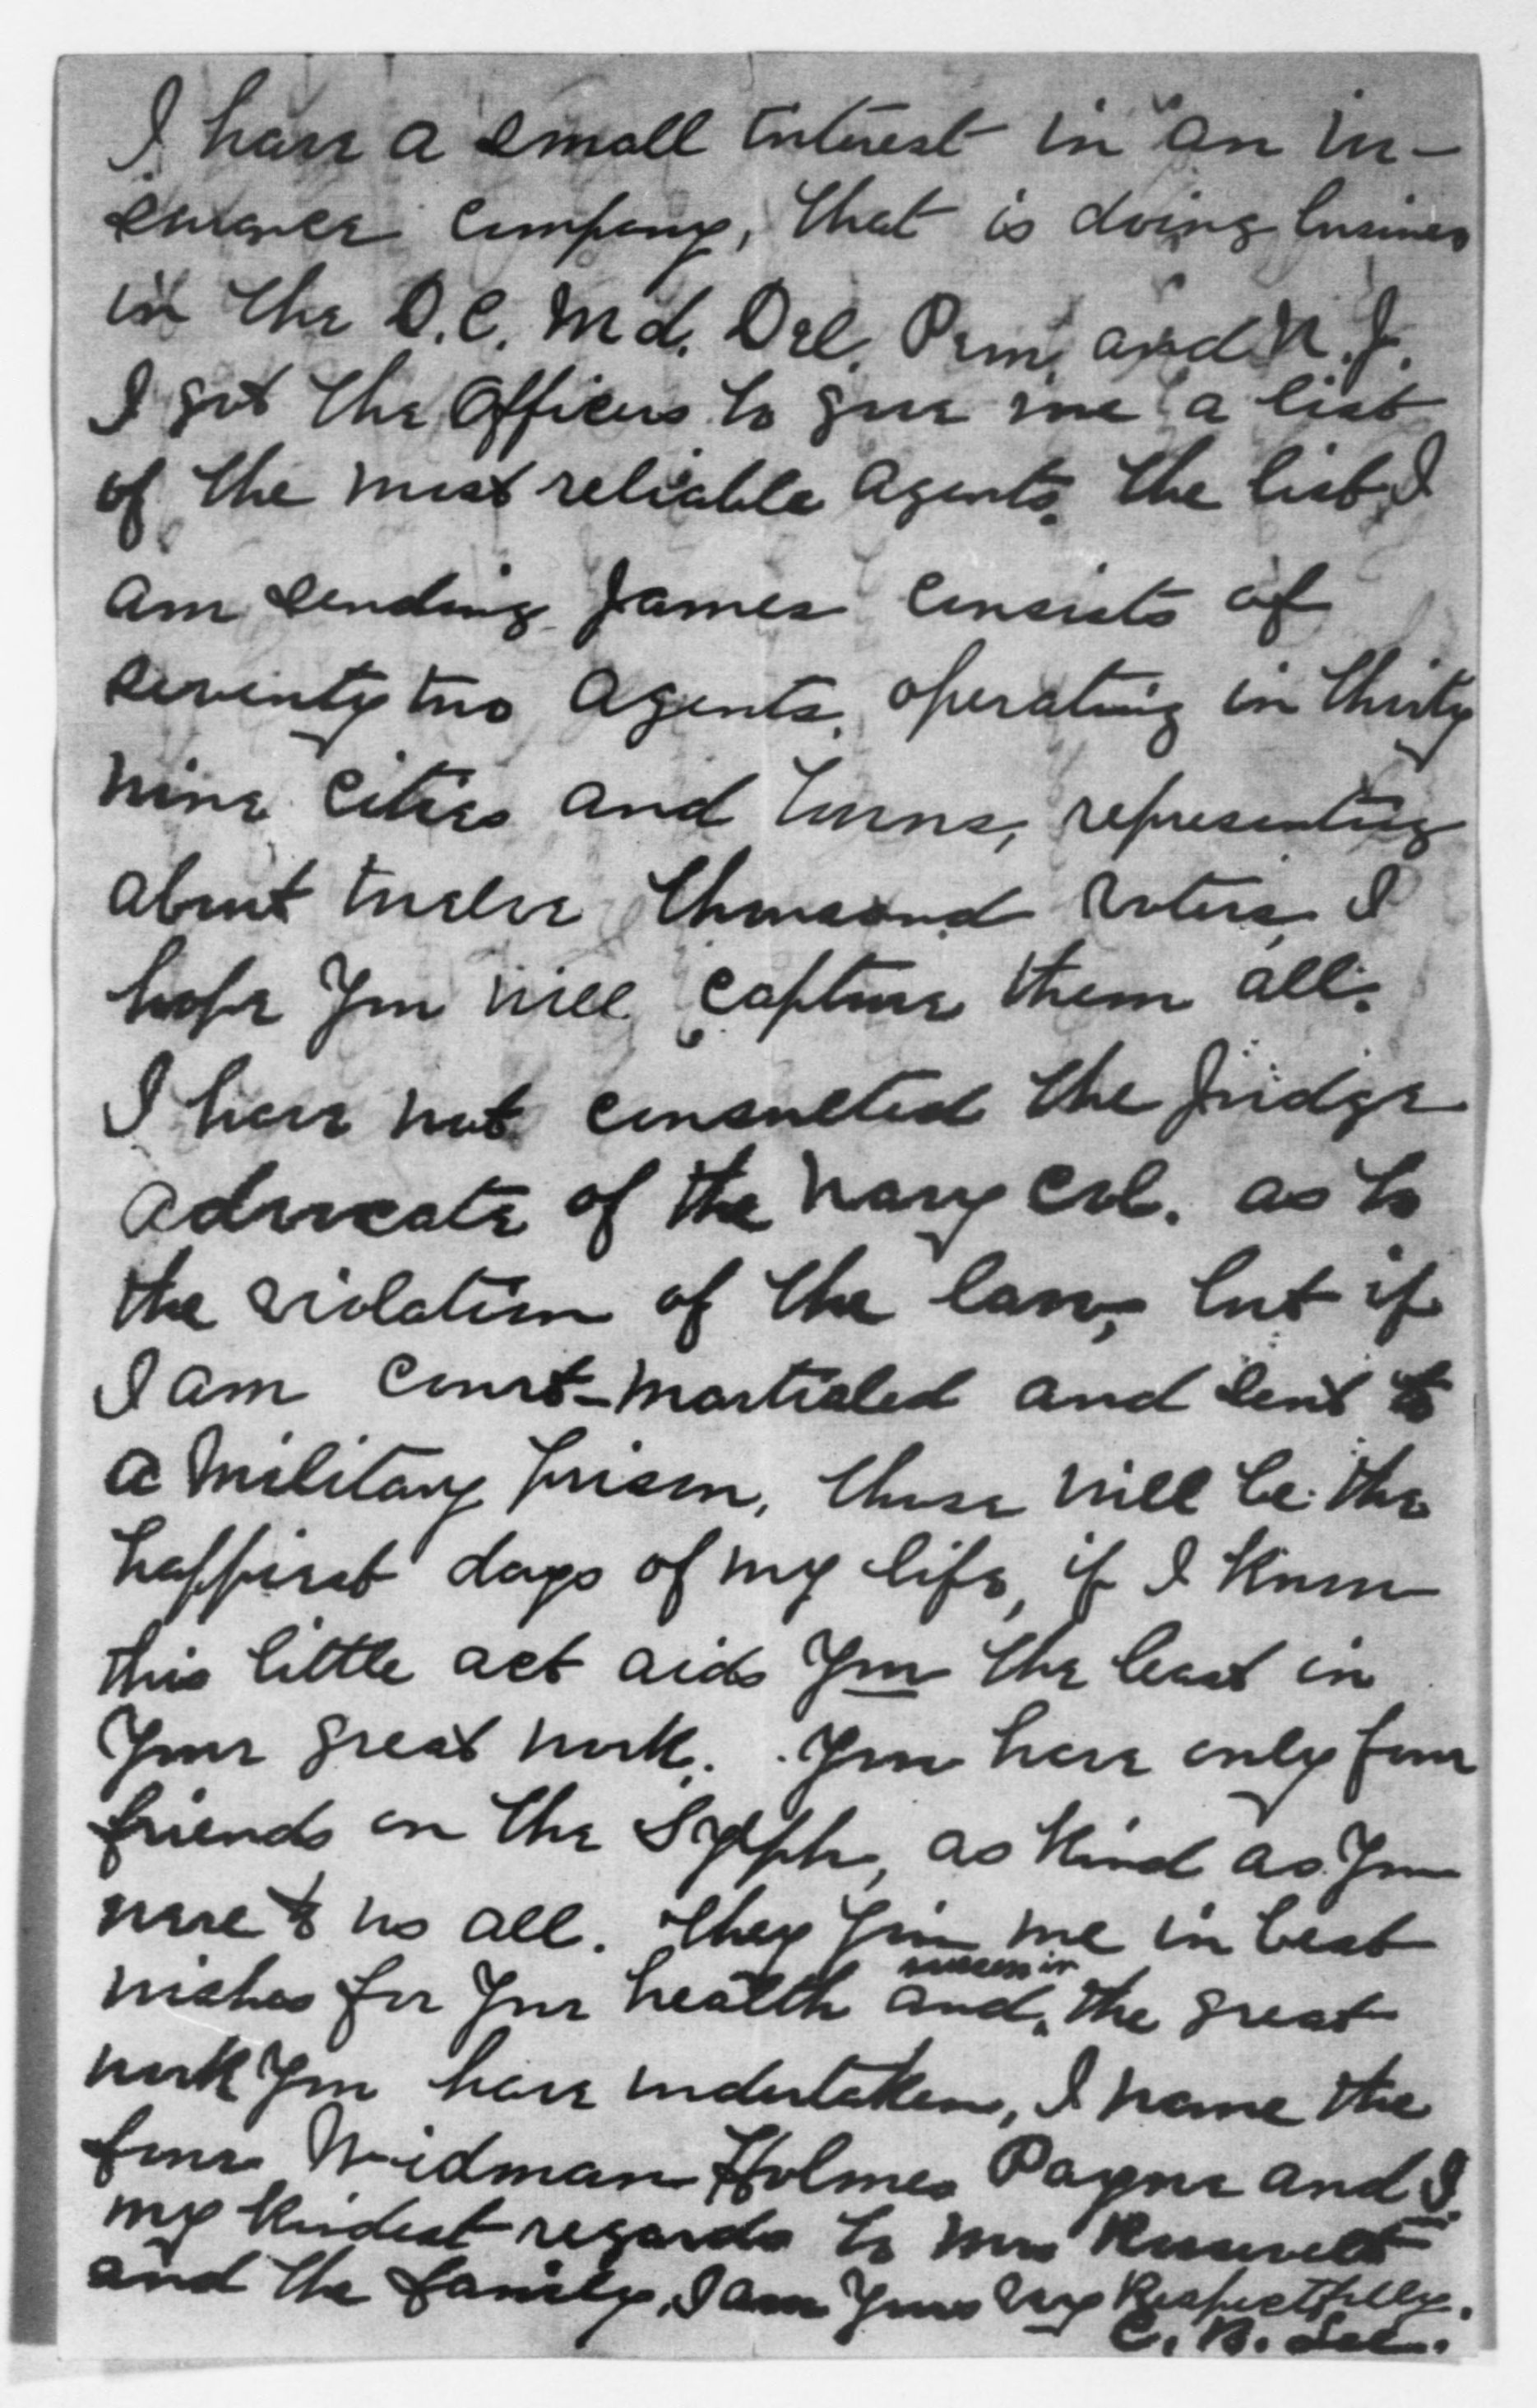 I have a small interest in an in-
surance company, that is doing business
in the D.C. Md. Del. Penn. and N.J.
I got the officers to give me a list
of the most reliable agents. The list I
am sending James consists of
seventy two agents, operating in thirty
nine cities and towns, representing
about twelve thousand voters, I
hope you will capture them all.
I have not consulted the Judge
advocate of the Navy as to
the violation of the law, but if
I am court-martialed and sent to
a military prison, those will be the
happiest days of my life, if I know
this little act aids you the least in
your great work. You have only four
friends on the Sylph, as kind as you
were to us all. They join me in best
wishes for your health and success in the great
work you have undertaken, I name the
four Weidman Holmes Payne and I.
my kindest regards to Mrs Roosevelt
and the family, I am yours very Respectfully.
C. B. Lee.